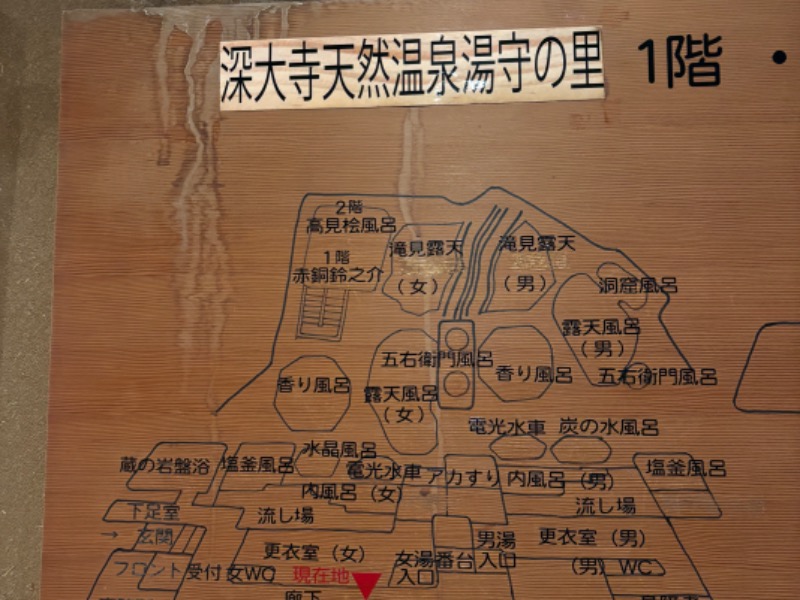 深大寺天然温泉湯守の里 1階・
2階
高見桧風呂
1階
赤銅鈴之介
滝見露天
(女)
滝見露天
(男)
洞窟風呂
露天風呂
(男)
五右衛門風呂
五右衛門風呂
香り風呂
香り風呂
露天風呂
(女)
電光水車 炭の水風呂
水晶風呂
蔵の岩盤浴 塩釜風呂
電光水車 アカすり 内風呂 (男)
塩釜風呂
内風呂 (女)
流し場
下足室
流し場
→ 玄関
更衣室 (女)
男湯
入口
更衣室 (男)
フロント 受付 女WC
現在地
女湯
入口
番台
(男) WC
廊下